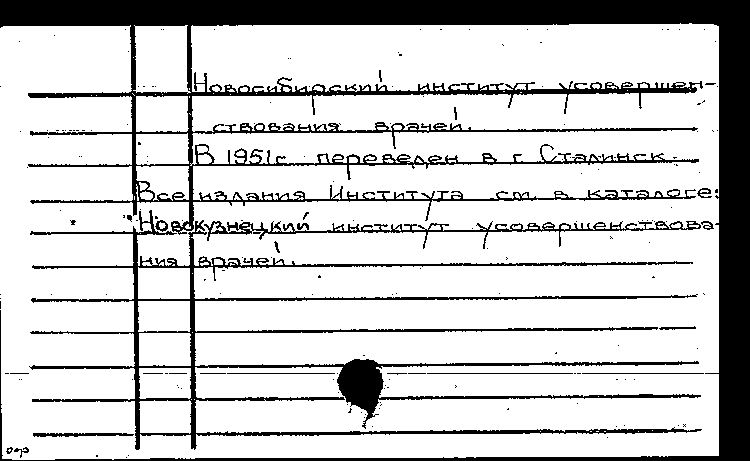 Новосибирский институт усовершен-
ствования врачей.
В 1951 г. переведен в г. Сталинск.
Все издания Института см. в каталоге:
Новокузнецкий институт усовершенствова-
ния врачей.